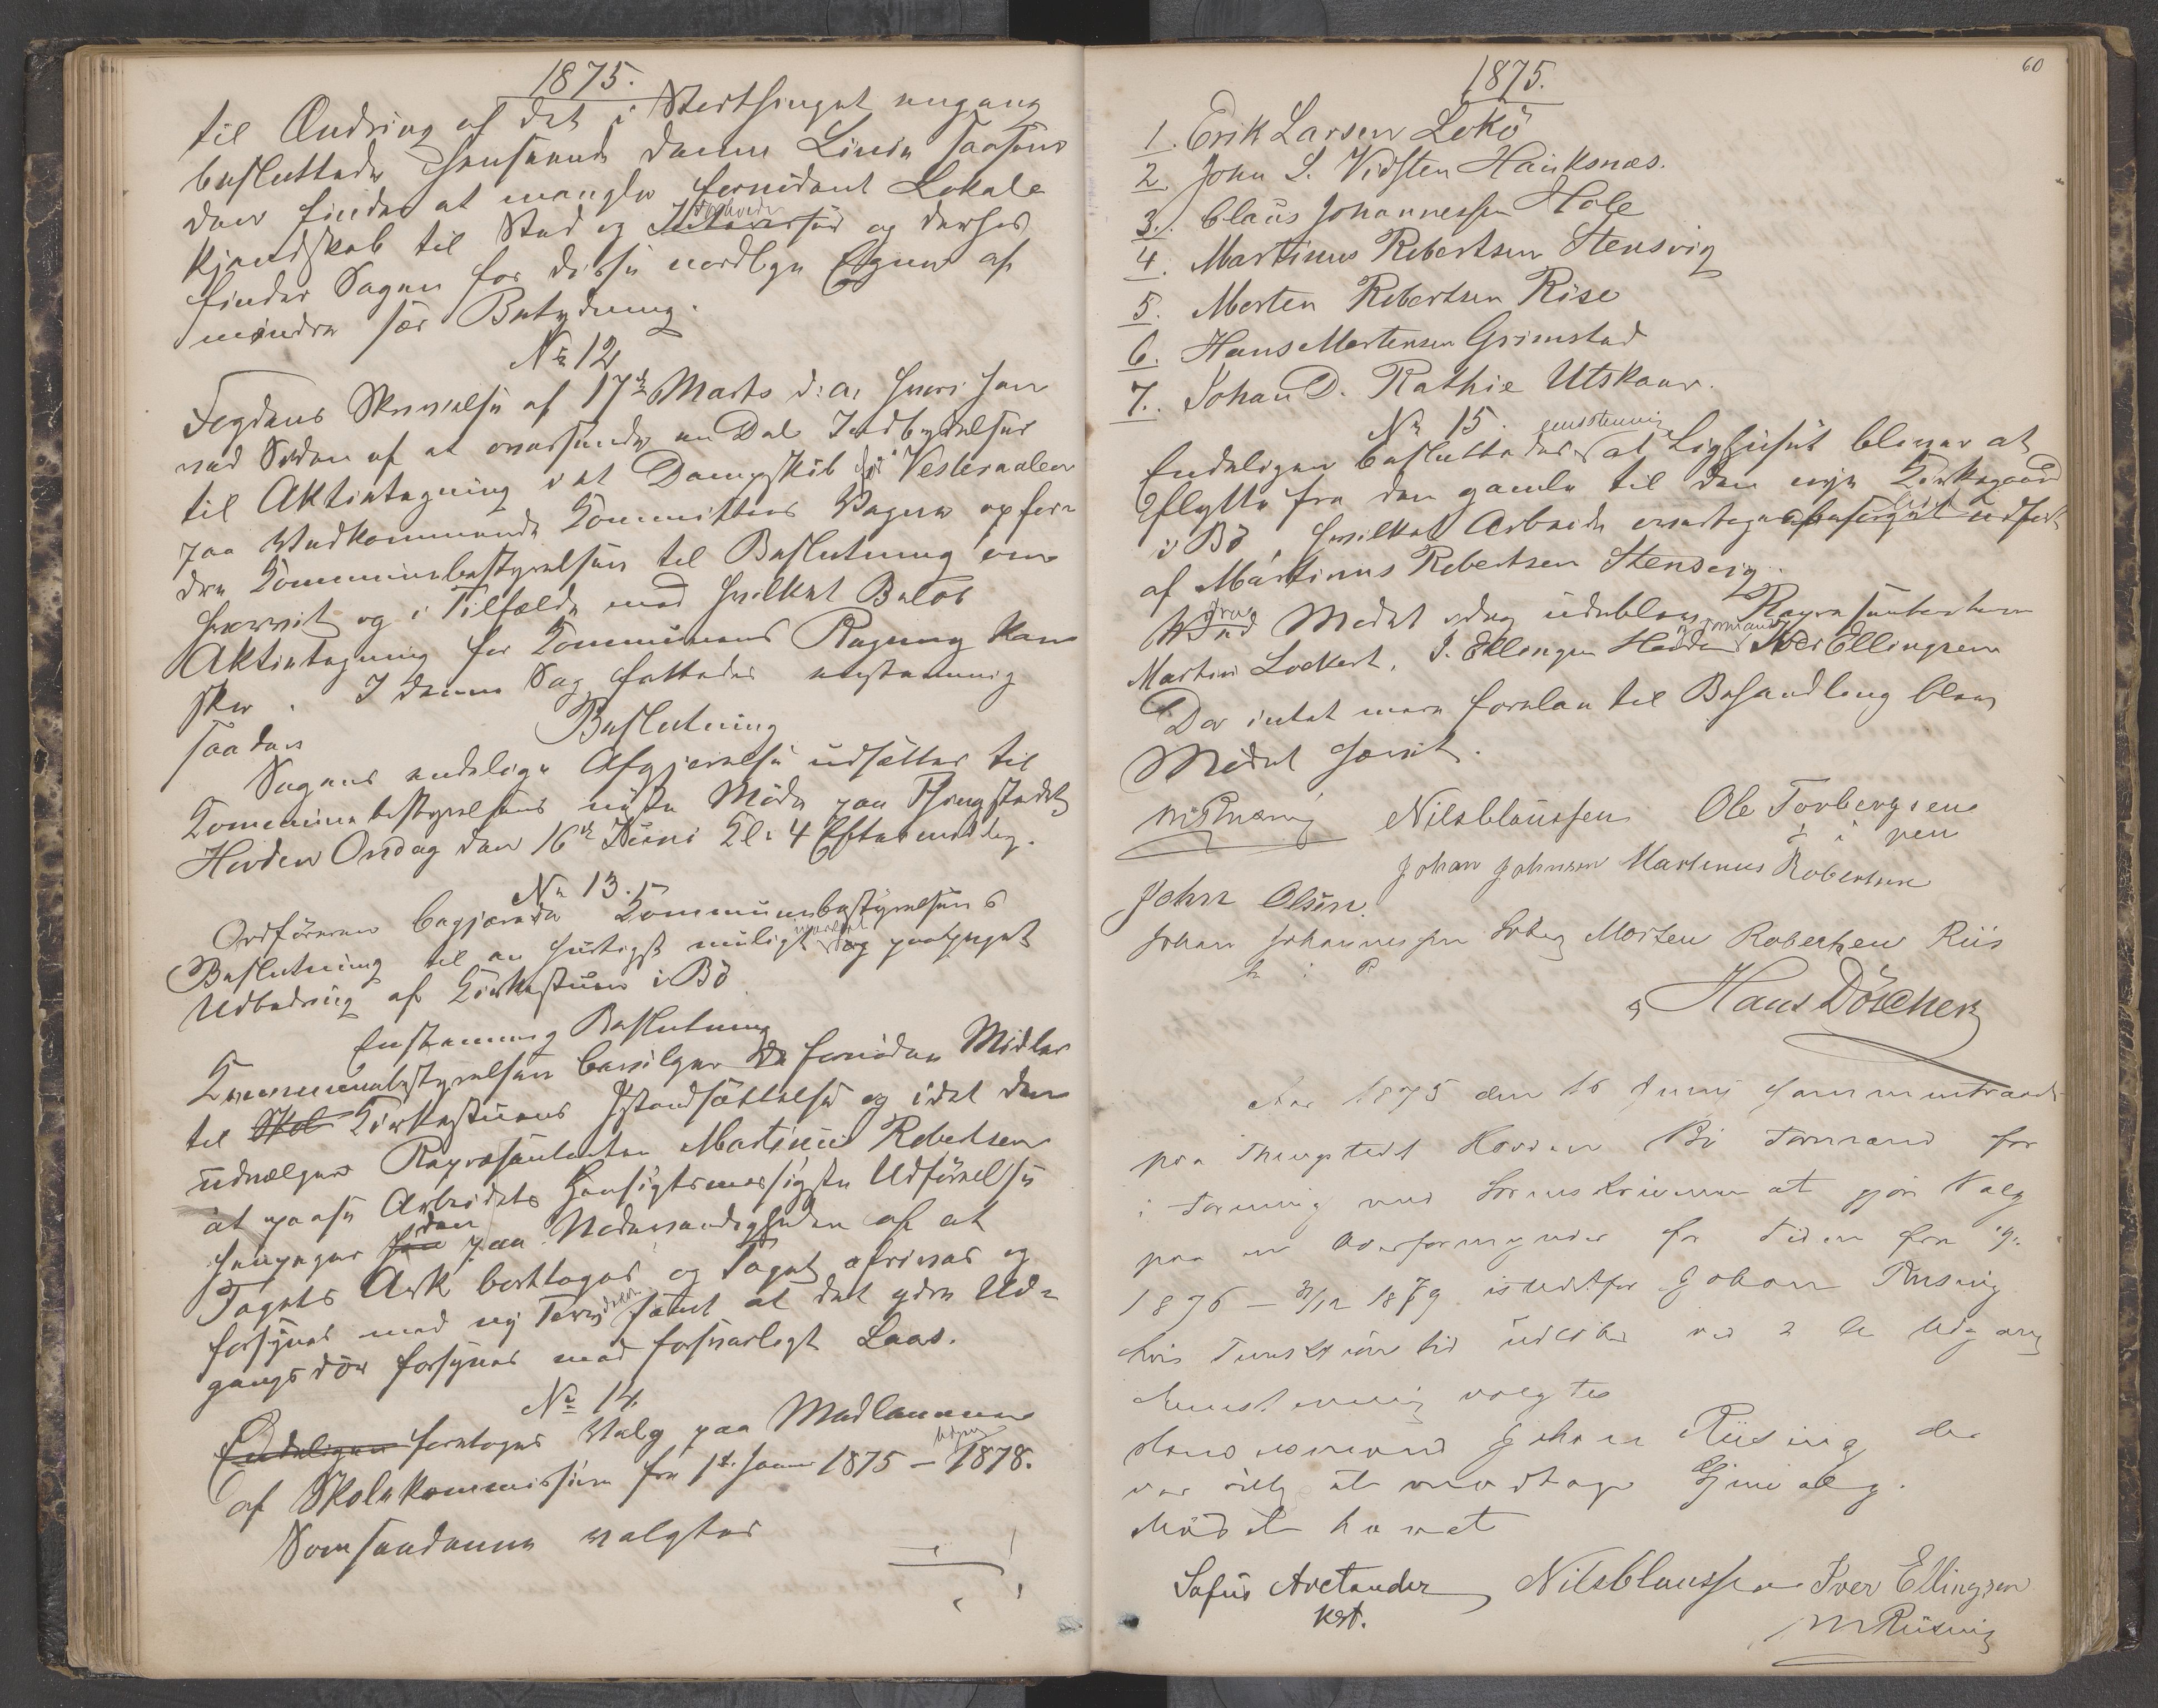 1875.
til Ændring af det i Storthinget engang
besluttede henseende denne Linie saasom
den findes at mangle fornødent Lokale
kjendskab til Sted og Behovede og derhos
finder Sagen for disse nordlige Egne af
mindre stor Betydning.
No 12
Fogdens Skrivelse af 17de Marts d. a. hvori han
ved Siden af at oversende en Del Indbydelser
til Aktietegning i et Dampskib for Vesteraalen
paa Vedkommende Committees Vegne opfor-
drer Kommunebestyrelsen til Beslutning om
hvorvidt og i Tilfælde med hvilket Beløb
Aktietegning for Kommunens Regning kan
ske. I denne Sag fattedes enstemmig
saadan Beslutning
Sagens endelige Afgjørelse udsættes til
Kommunebestyrelsens næste Møde paa Thingstedet
Hovden Onsdag den 16de Juni Kl. 4 Eftermiddag.
No 13.
Ordføreren begjærede Kommunebestyrelsens
Beslutning til en hurtigst muligt og paatænkt
Udbedring af Kirkestuen i Bø
Enstemmig Beslutning
Kommunebestyrelsen bevilger de fornødne Midler
til Skol Kirkestuens Istandsættelse og idet den
udvælger Repræsentanten Martinus Robertsen
at paase Arbeidets hensigtsmæssigste Udførelse
henpeger den paa Nødvendigheden af at
Tagets Ark borttages og Taget afrives og
forsynes med ny Torv samt at det ydre Ud-
gangsdør forsynes med forsvarligt Laas.
No 14.
Endeligen foretoges Valg paa Medlemmer
af Skolekommissionen fra 1st Januar 1875 – Udgang 1878.
Som saadanne valgtes
60
1875.
1. Erik Larsen Lokø
2. John L. Vidsten Hauksnæs.
3. Claus Johannessen Hole
4. Martinus Robertsen Stensvig
5. Morten Robertsen Rise
6. Hans Mortensen Grimstad
7. Johan D. Rathie Utskaar.
No 15.
Endeligen besluttedes enstemmig at Lighuset bliver at
flytte fra den gamle til den nye Kirkegaard
i Bø, hvilket Arbeide overdroges besørget udført
af Martinus Robertsen Stensvig.
Fra Mødet idag udeblev Repræsentanterne
Martin Lockert, I. Ellingsen Hovden Iver Ellingsen
Da intet mere forelaa til Behandling blev
Mødet hævet.
M Riusnig Nils Claussen Ole Torbergsen
i pen
John Olsen. Johan Johnsen Martinus Robertsen
Johan Johannessen Morten Robertsen Riis
Hans Döscher
Aar 1875 den 16 Juni sammentraadte
paa Thingstedet Hovden Bø Formand for
i Forening med Sorenskriveren at gjøre Valg
paa en Overformynder for Tiden fra
1876 – 31/12 1879 istedetfor Johan Riusnig
hvis Funktionstid udløber ved d. A. Udgang
Enstemmig valgtes
Johan Riusnig der
var villig at modtage Gjenvalg.
Mødet hævet
Sofus Arctander Nils Claussen Iver Ellingsen
kst. M Riusnig